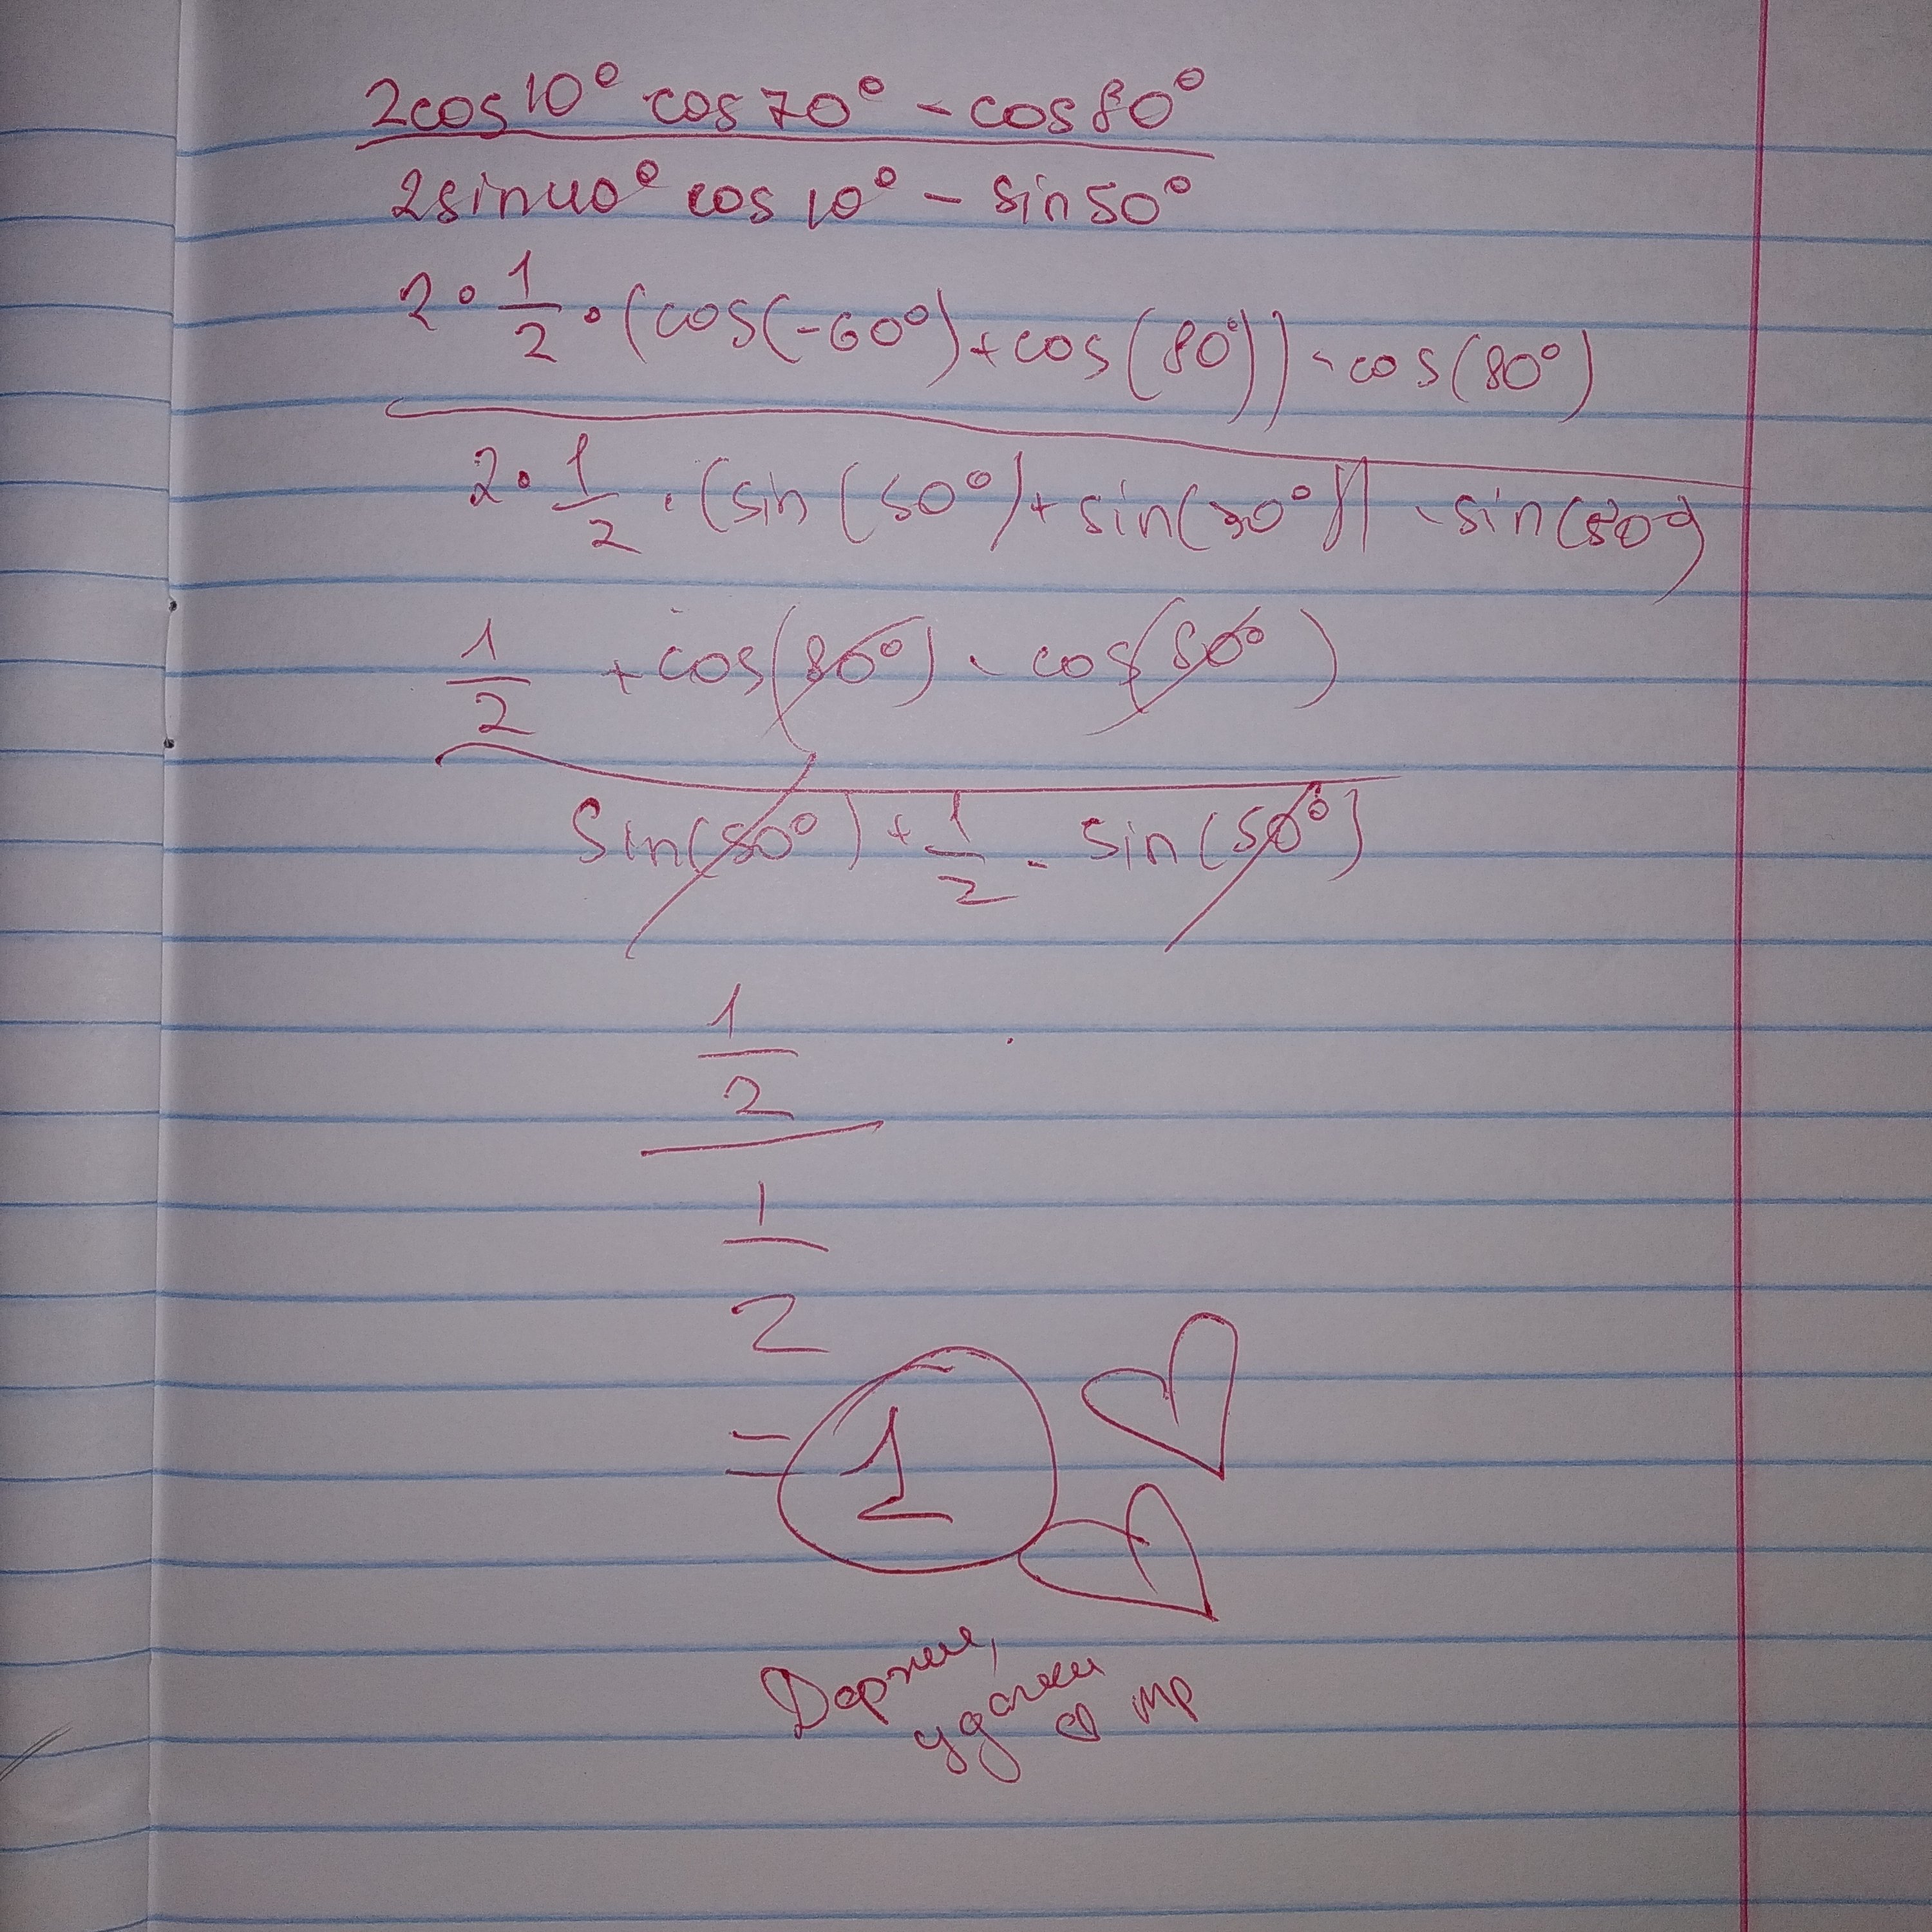 2cos10° cos70° - cos80°
2sin40° cos10° - sin50°
2 · 1/2 · (cos(-60°) + cos(80°)) - cos(80°)
2 · 1/2 · (sin(50°) + sin(30°)) - sin(50°)
1/2 + cos(80°) - cos(80°)
sin(50°) + 1/2 - sin(50°)
1
2
1
2
= 1
Держи,
удачки
мр